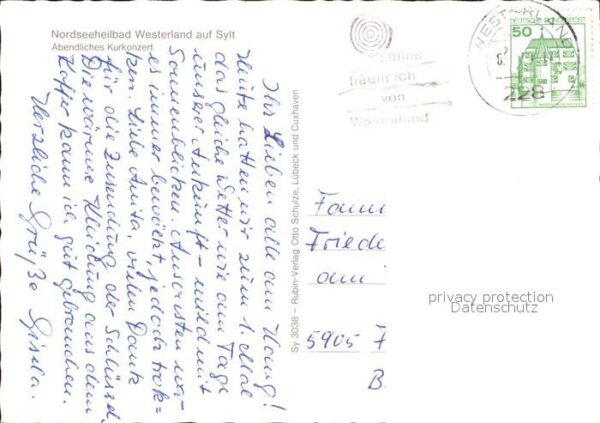 Nordseeheilbad Westerland auf Sylt
Abendliches Kurkonzert
Ihr Lieben alle am Hang!
Heute hatten wir zum 1. Mal
das gleiche Wetter wie am Tage
unserer Ankunft - mild mit
Sonnenblicken. Ansonsten war
es immer bewölkt, jedoch trok-
ken. Liebe Anita, vielen Dank
für die Zusendung der Schlüssel.
Die wärmere Kleidung aus dem
Koffer kann ich gut gebrauchen.
Herzliche Grüße Gisela.
Sy 3038 – Rubin-Verlag Otto Schulze, Lübeck und Cuxhaven
von
Westerland
WESTERLAND
228
DEUTSCHE BUNDESPOST
50
Fam
Friede
am
5905 F
B
privacy protection
Datenschutz